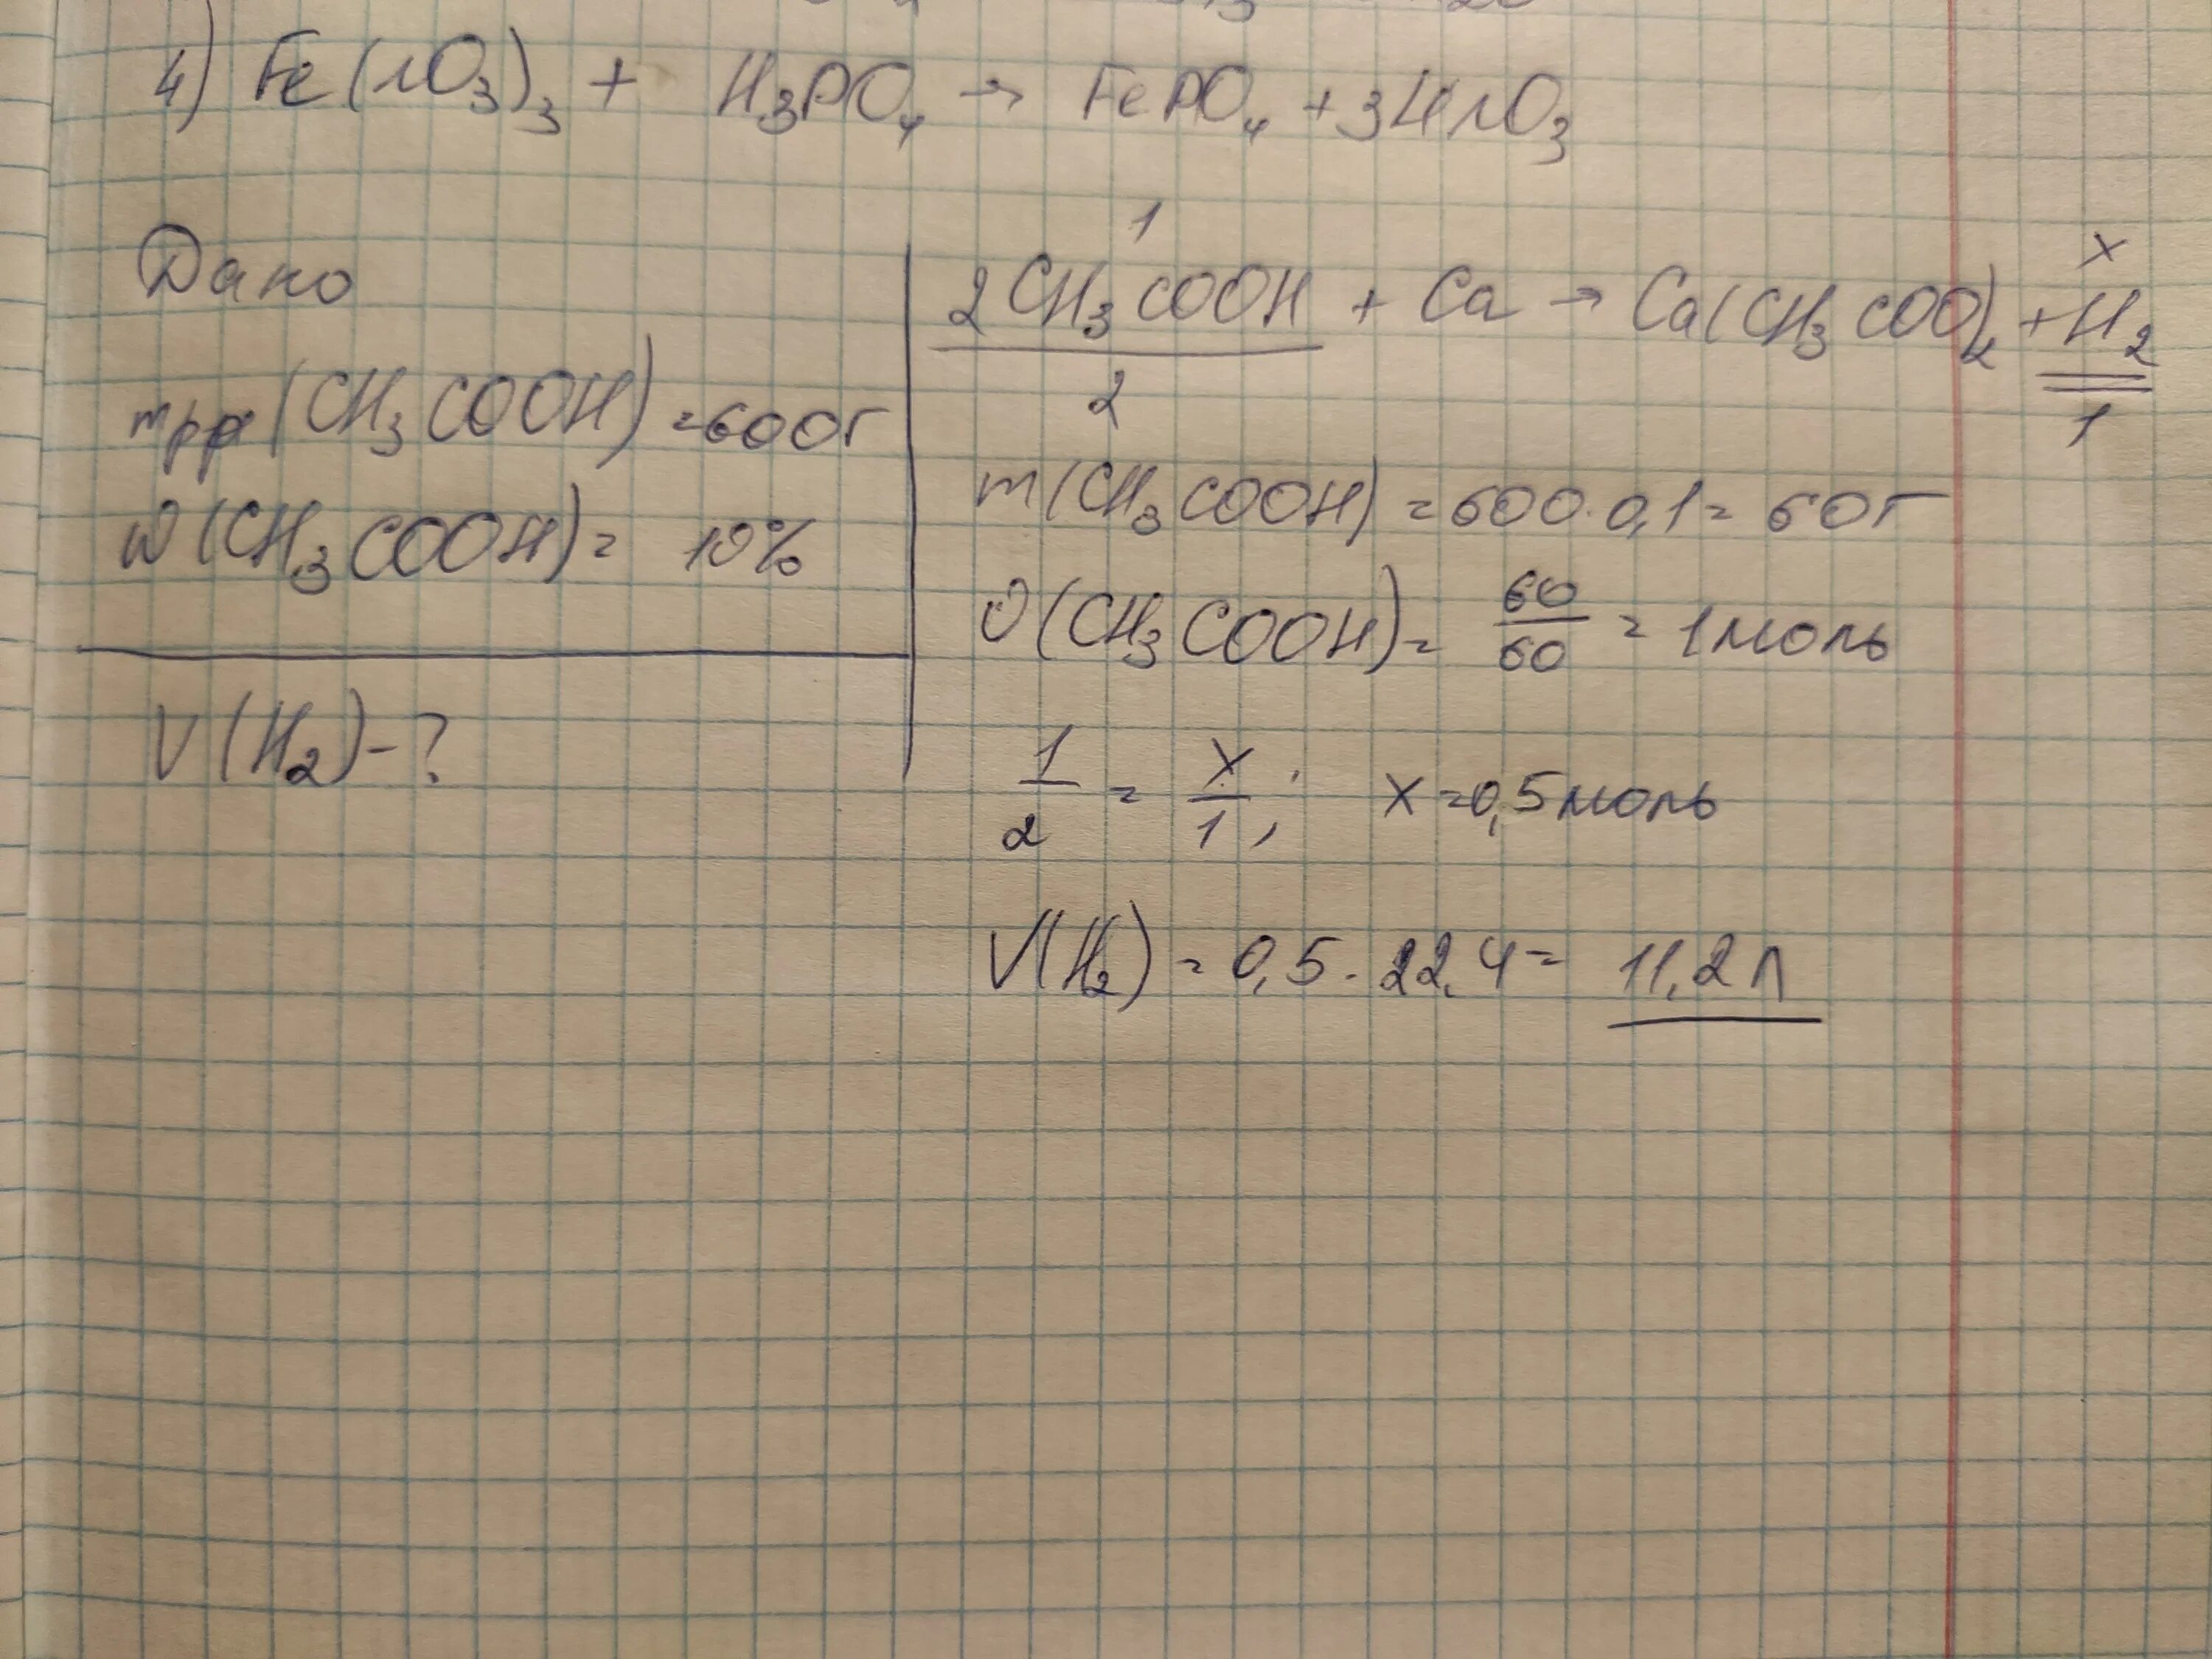 4) Fe(NO₃)₃ + H₃PO₄ → FePO₄ + 3HNO₃
Дано
mрр(CH₃COOH) = 600г
ω(CH₃COOH) = 10%
V(H₂) - ?
1 x
2CH₃COOH + Ca → Ca(CH₃COO)₂ + H₂
2 1
m(CH₃COOH) = 600 · 0,1 = 60г
υ(CH₃COOH) = 60/60 = 1моль
1/2 = x/1; x = 0,5моль
V(H₂) = 0,5 · 22,4 = 11,2л